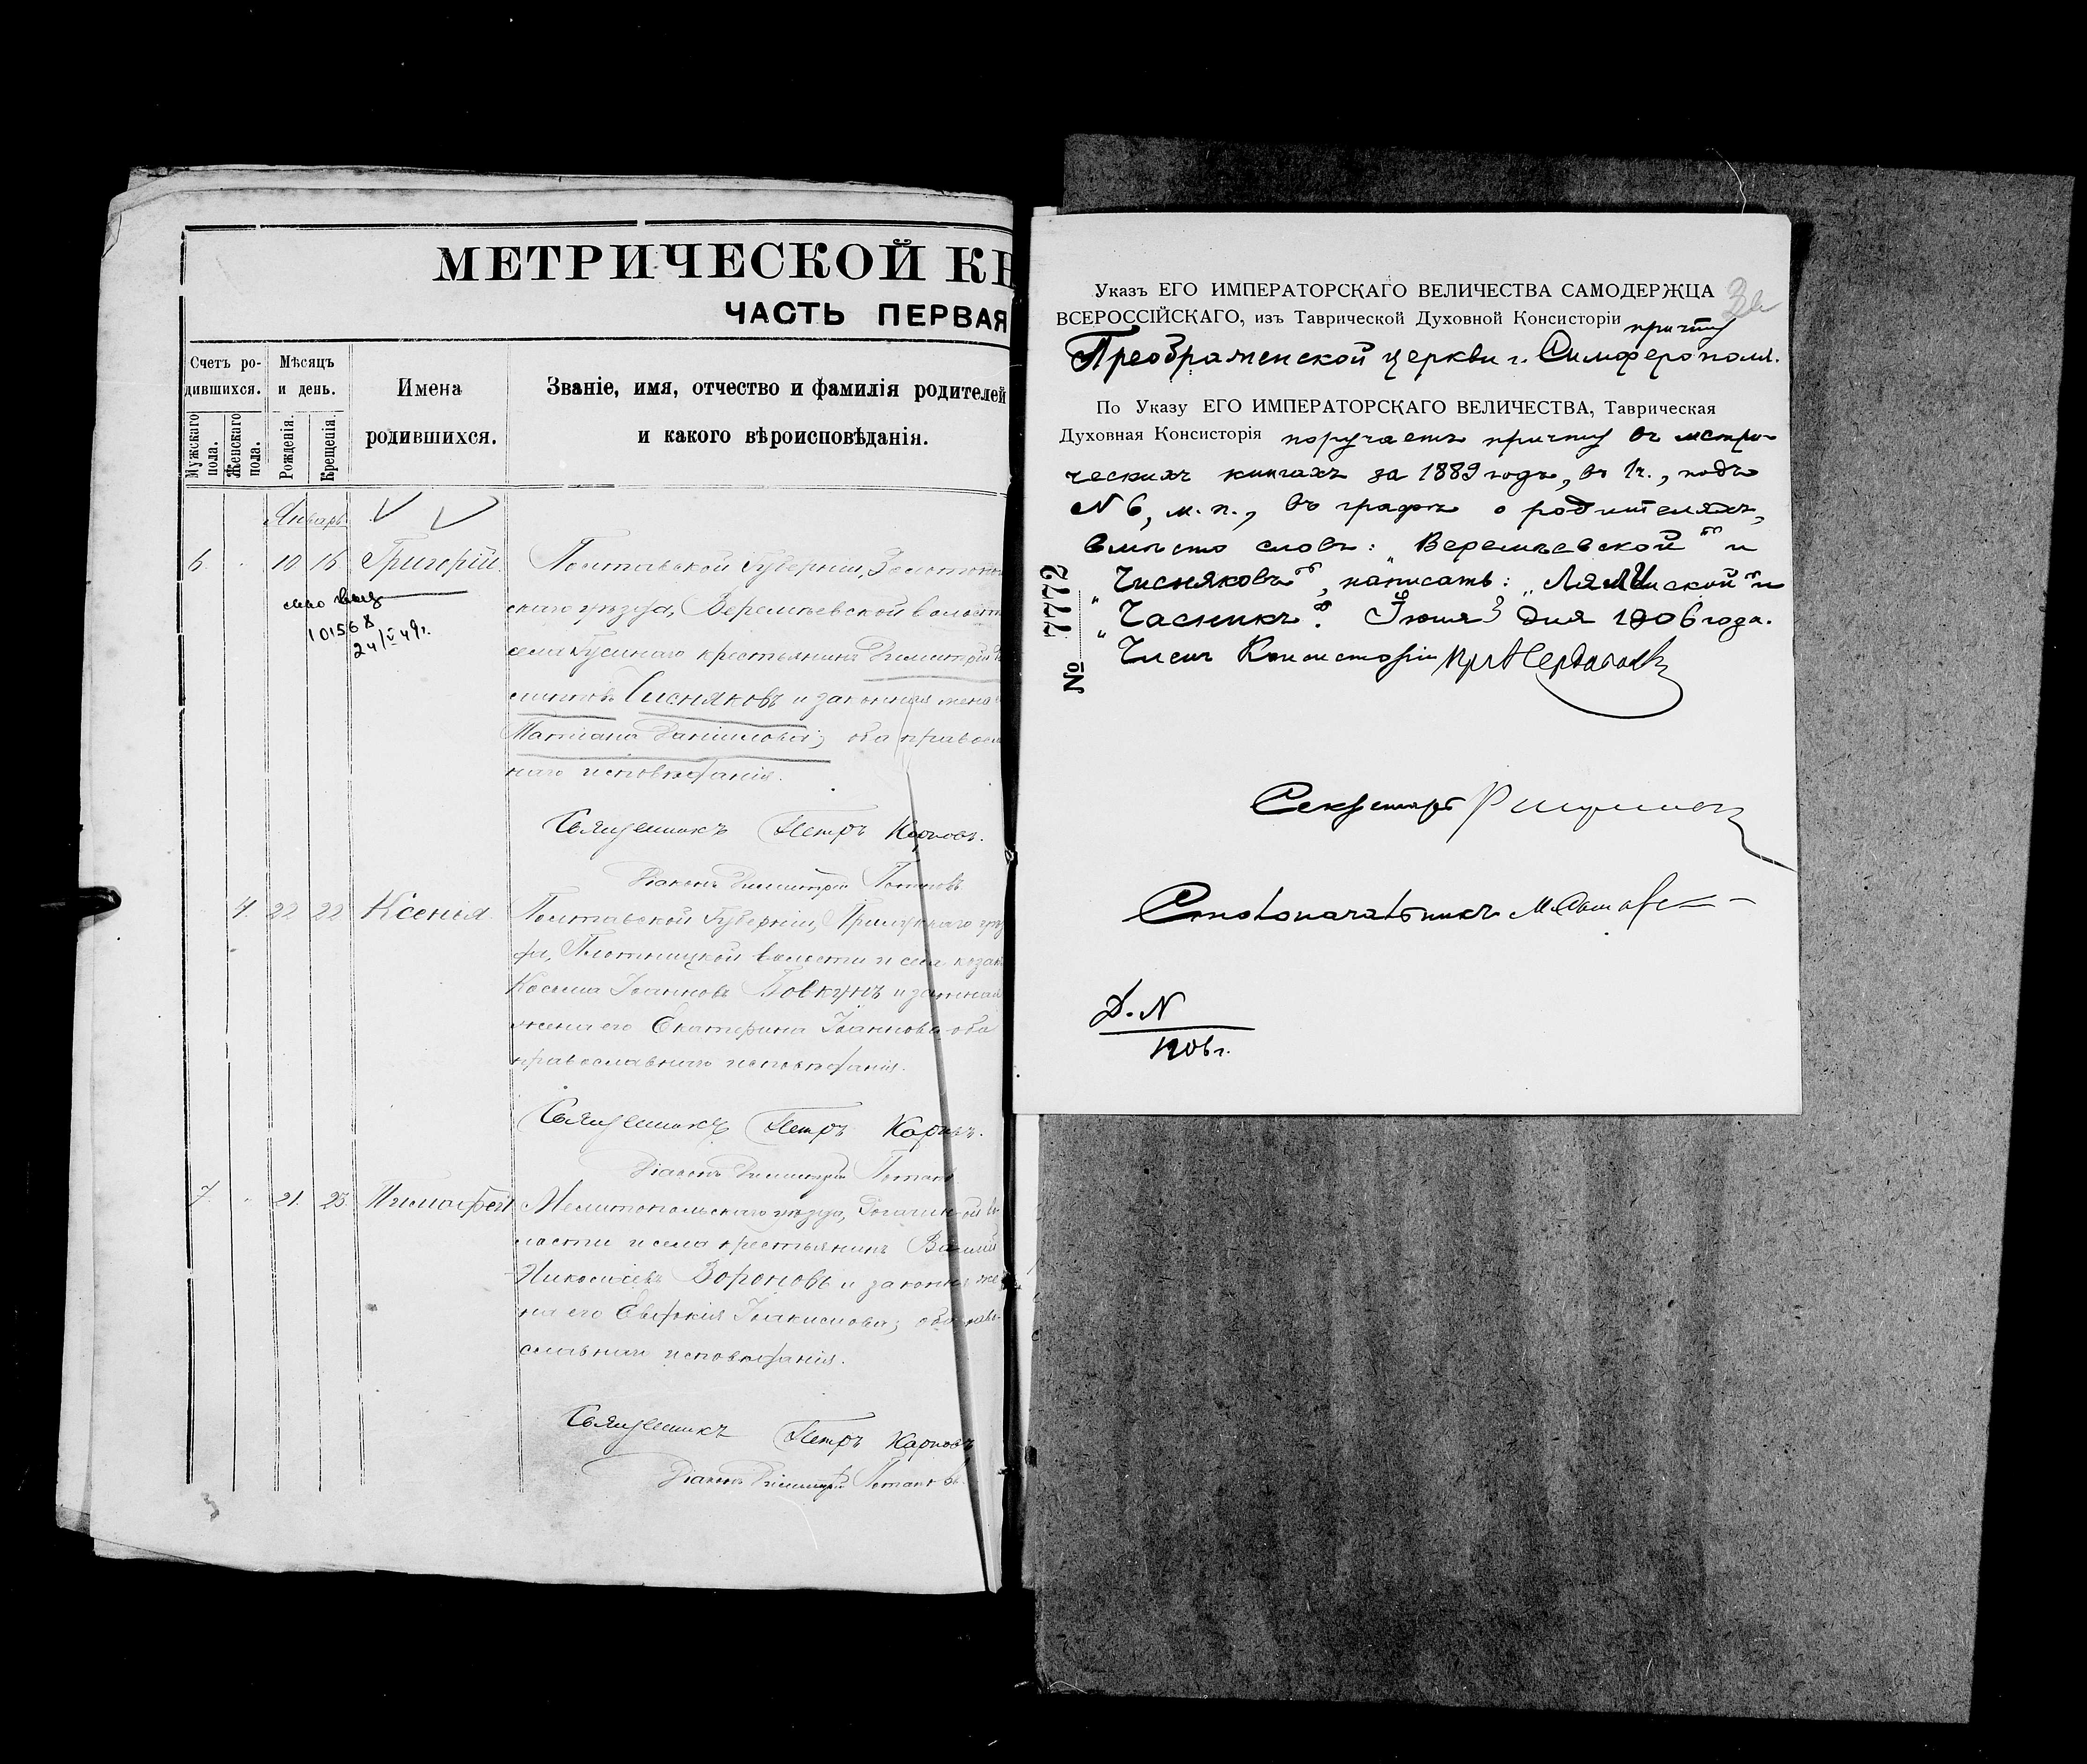 МЕТРИЧЕСКОЙ КН
ЧАСТЬ ПЕРВАЯ
Счетъ ро-
дившихся.
Мужскаго пола.
Женскаго пола.
Мѣсяцъ
и день.
Рожденія.
Крещенія.
Имена
родившихся.
Званіе, имя, отчество и фамилія родителей
и какого вѣроисповѣданія.
Январь
6. 10 16 Григорій.
101568
24/V 49г.
Полтавской Губерніи, Золотонош
скаго уѣзда, Веремѣевской волости
села Гусинаго крестьянинъ Димитрій
Чисняковъ и законная жена
Татіана Даніилова; оба правосл
наго исповѣданія.
Священникъ Петръ Карповъ.
Діаконъ Димитрій Потаповъ
4. 22 22 Ксенія.
Полтавской Губерніи, Прилукскаго уѣз
да, волости и села козакъ
Косьма Іоанновъ Бовкунъ и законная
жена его Екатерина Іоаннова оба
православнаго исповѣданія.
Священникъ Петръ Карповъ.
Діаконъ Димитрій Потаповъ
7. 21. 25. Тимофей
Мелитопольскаго уѣзда, во
лости и села крестьянинъ Василій
Николаевъ Вороновъ и законная же
на его Евфимія; оба право-
славнаго исповѣданія.
Священникъ Петръ Карповъ
Діаконъ Димитрій Потаповъ.
3
Указъ ЕГО ИМПЕРАТОРСКАГО ВЕЛИЧЕСТВА САМОДЕРЖЦА
ВСЕРОССІЙСКАГО, изъ Таврической Духовной Консисторіи причту
Преображенской церкви г. Симферополя.
По Указу ЕГО ИМПЕРАТОРСКАГО ВЕЛИЧЕСТВА, Таврическая
Духовная Консисторія поручаетъ причту въ метри-
ческихъ книгахъ за 1889 годъ, въ 1 ч., подъ
№ 6, м. п., въ графѣ о родителяхъ,
вмѣсто словъ: „Веремѣевской" и
„Чисняковъ", написать: „Лялинской" и
„Часникъ". Іюня 3 дня 1906 года.
Членъ Консисторіи
Секретарь
Столоначальникъ
Д. N
1906 г.
№ 7772